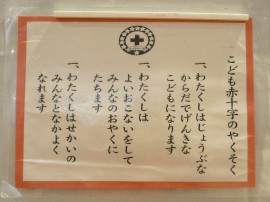 こども赤十字のやくそく
一、わたくしはじょうぶな
からだでげんきな
こどもになります
一、わたくしは
よいおこないをして
みんなのおやくに
たちます
一、わたくしはせかいの
みんなとなかよく
なれます